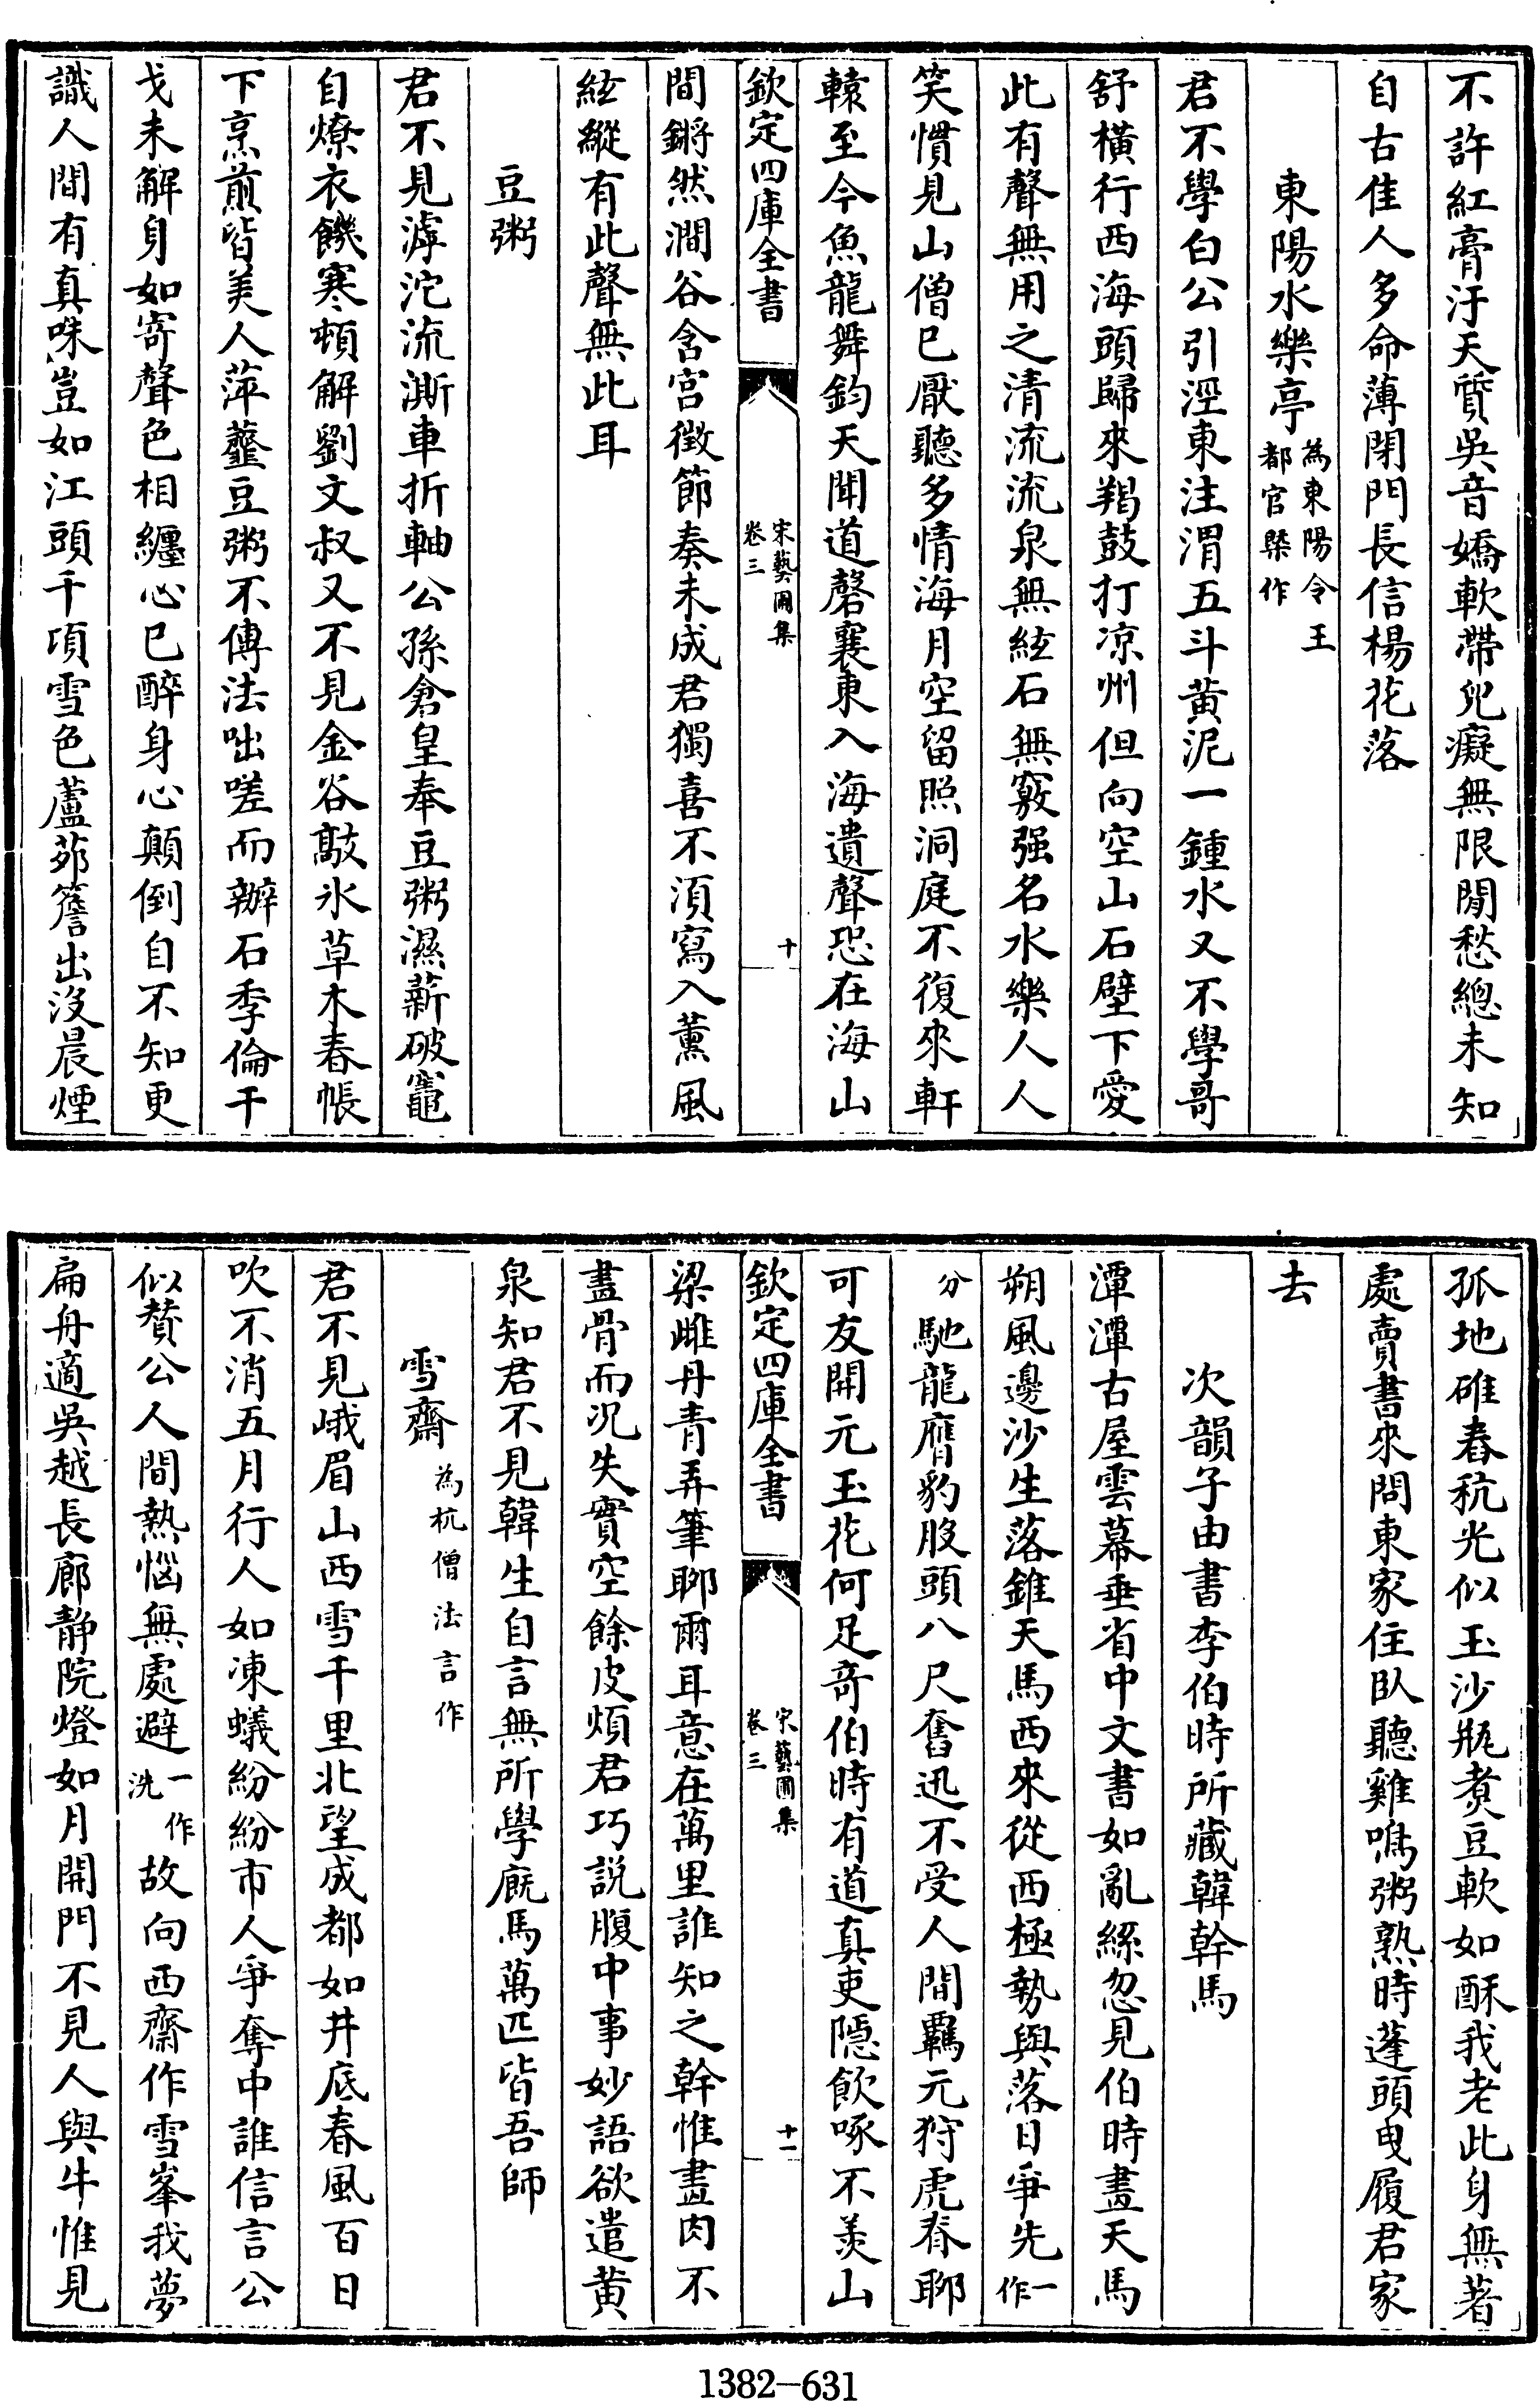 不許紅膏汙天質吳音嬌軟帶兒癡無限閒愁總未知
自古佳人多命薄閉門長信楊花落
東陽水樂亭為東陽令王都官槩作
君不學白公引涇東注渭五斗黄泥一鍾水又不學哥
舒橫行西海頭歸來羯鼓打凉州但向空山石壁下愛
此有聲無用之清流流泉無絃石無竅强名水樂人人
笑慣見山僧已厭聽多情海月空留照洞庭不復來軒
轅至今魚龍舞鈞天聞道磬襄東入海遺聲恐在海山
欽定四庫全書
宋藝圃集
卷三
十
間鏘然澗谷含宮徴節奏未成君獨喜不須寫入薫風
絃縱有此聲無此耳
豆粥
君不見滹沱流澌車折軸公孫倉皇奉豆粥濕薪破竈
自燎衣饑寒頓解劉文叔又不見金谷敲氷草木春帳
下烹煎皆美人萍虀豆粥不傳法咄嗟而辦石季倫干
戈未解身如寄聲色相纏心已醉身心顛倒自不知更
識人間有真味豈如江頭千項雪色蘆茆簷出沒晨煙
孤地碓舂秔光似玉沙瓶煮豆軟如酥我老此身無著
處賣書來問東家住臥聽雞鳴粥熟時蓬頭曳履君家
去
次韻子由書李伯時所藏韓幹馬
潭潭古屋雲幕垂省中文書如亂絲忽見伯時畫天馬
朔風邊沙生落錐天馬西來從西極勢與落日爭先一作
分馳龍膺豹股頭八尺奮迅不受人間羈元狩虎脊聊
可友開元玉花何足竒伯時有道真吏隱飲啄不羨山
欽定四庫全書
宋藝圃集
卷三
十一
梁雌丹青弄筆聊爾耳意在萬里誰知之幹惟畫肉不
畫骨而况失實空餘皮煩君巧説腹中事妙語欲遣黄
泉知君不見韓生自言無所學廐馬萬匹皆吾師
雪齋為杭僧法言作
君不見峨眉山西雪千里北望成都如井底春風百日
吹不消五月行人如凍蟻紛紛市人爭奪中誰信言公
似賛公人間熱惱無處避一作洗故向西齋作雪峯我夢
扁舟適吳越長廊静院燈如月開門不見人與牛惟見
1382-631